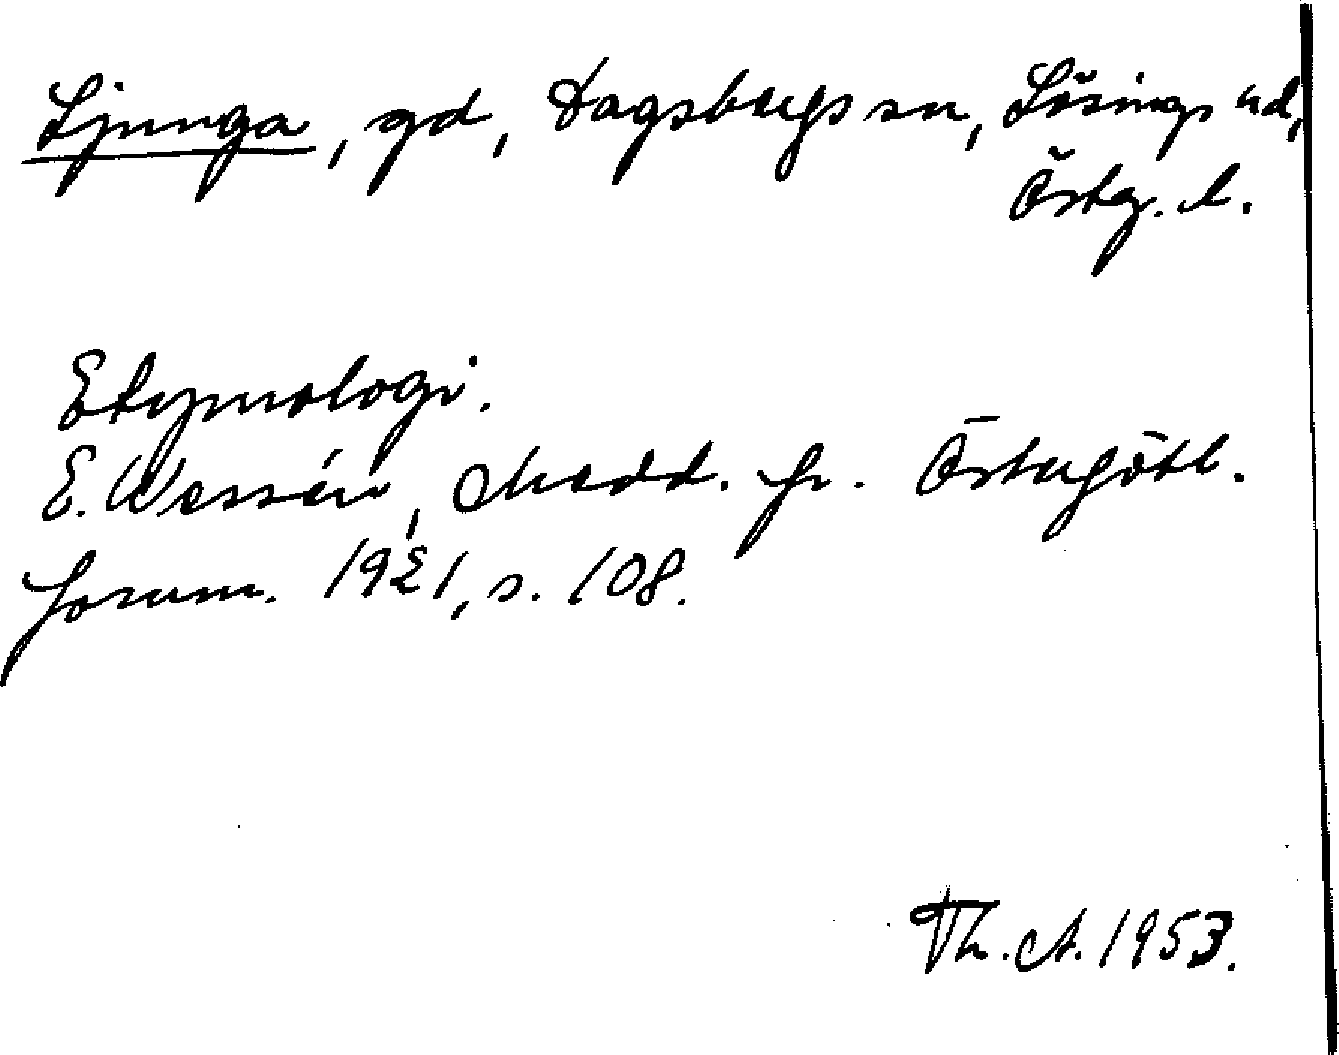 Ljunga, gd, Dagsbergs sn, Lösings hd,
Östg. l.
Etymologi.
E. Wessén, Medd. fr. Östergötl.
fornm. 1921, s. 108.
Th. A. 1953.